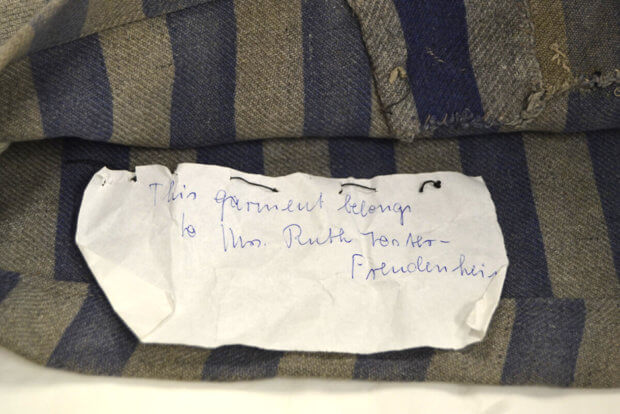 This garment belongs
to Mrs. Ruth Foster-
Freudenheim